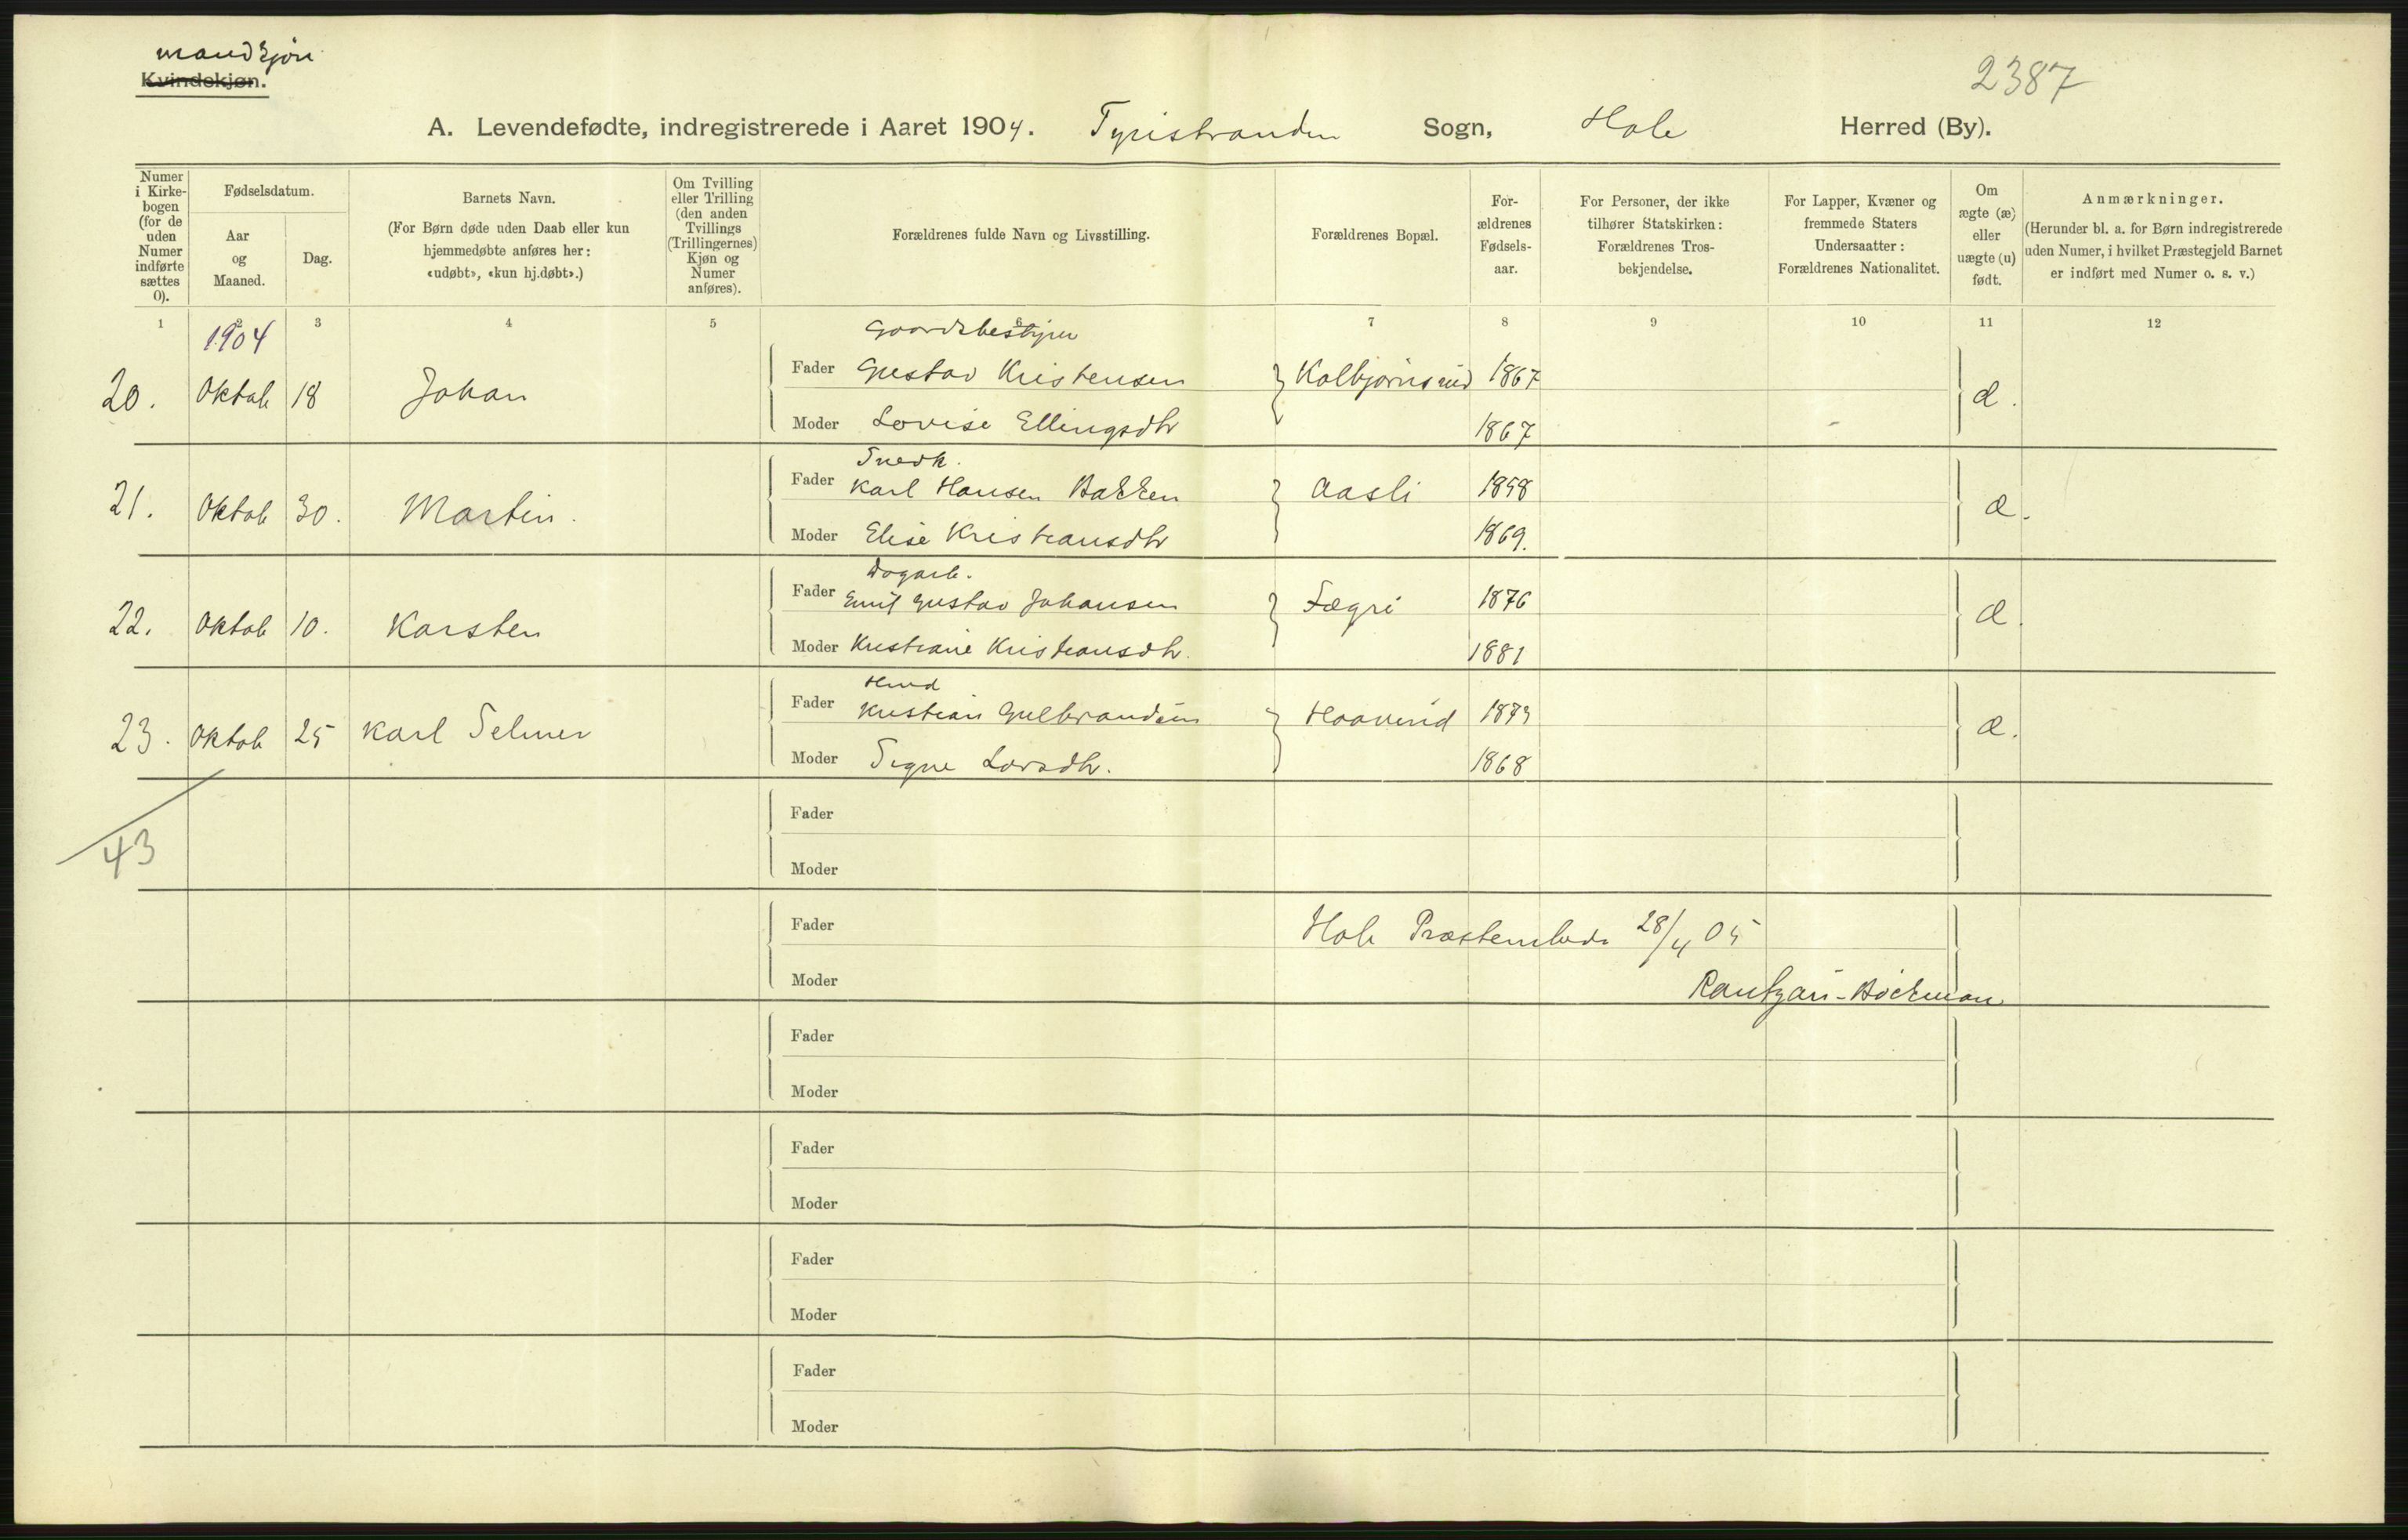 mandkjøn
Kvindekjøn.
2387
A. Levendefødte, indregistrerede i Aaret 1904. Tyristranden Sogn, Hole Herred (By).
Numer i Kirkebogen (for de uden Numer indførte sættes 0).
Fødselsdatum.
Aar og Maaned.
Dag.
Barnets Navn.
(For Børn døde uden Daab eller kun hjemmedøbte anføres her: «udøbt», «kun hj.døbt».)
Om Tvilling eller Trilling (den anden Tvillings (Trillingernes) Kjøn og Numer anføres).
Forældrenes fulde Navn og Livsstilling.
Forældrenes Bopæl.
Forældrenes Fødselsaar.
For Personer, der ikke tilhører Statskirken: Forældrenes Trosbekjendelse.
For Lapper, Kvæner og fremmede Staters Undersaatter: Forældrenes Nationalitet.
Om ægte (æ) eller uægte (u) født.
Anmærkninger.
(Herunder bl. a. for Børn indregistrerede uden Numer, i hvilket Præstegjeld Barnet er indført med Numer o. s. v.)
1 2 3 4 5 6 7 8 9 10 11 12
1904
Gaardsbestyrer
20. Oktob 18 Johan Fader Gustav Kristensen Kolbjørnsrud 1867 æ.
Moder Lovise Ellingsdtr 1867
Snedk.
21. Oktob 30. Martin. Fader Karl Hansen Bakken Aasli 1858 æ.
Moder Elise Kristiansdtr 1869.
Dagarb.
22. Oktob 10. Karsten Fader Emil Gustav Johansen Fægri 1876 æ.
Moder Kristiane Kristiansdtr. 1881
23. Oktob 25 Karl Selmer Fader Kristian Gulbrandsen Haaverud 1873 æ.
Moder Signe Larsdtr. 1868
43
Fader
Moder
Fader Hole Præsteembede 28/4 05
Moder Rantzau-Böckman
Fader
Moder
Fader
Moder
Fader
Moder
Fader
Moder